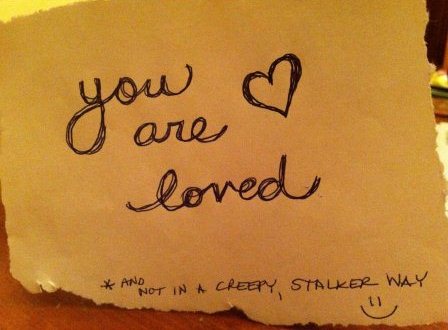 you
are
loved
* AND NOT IN A CREEPY, STALKER WAY